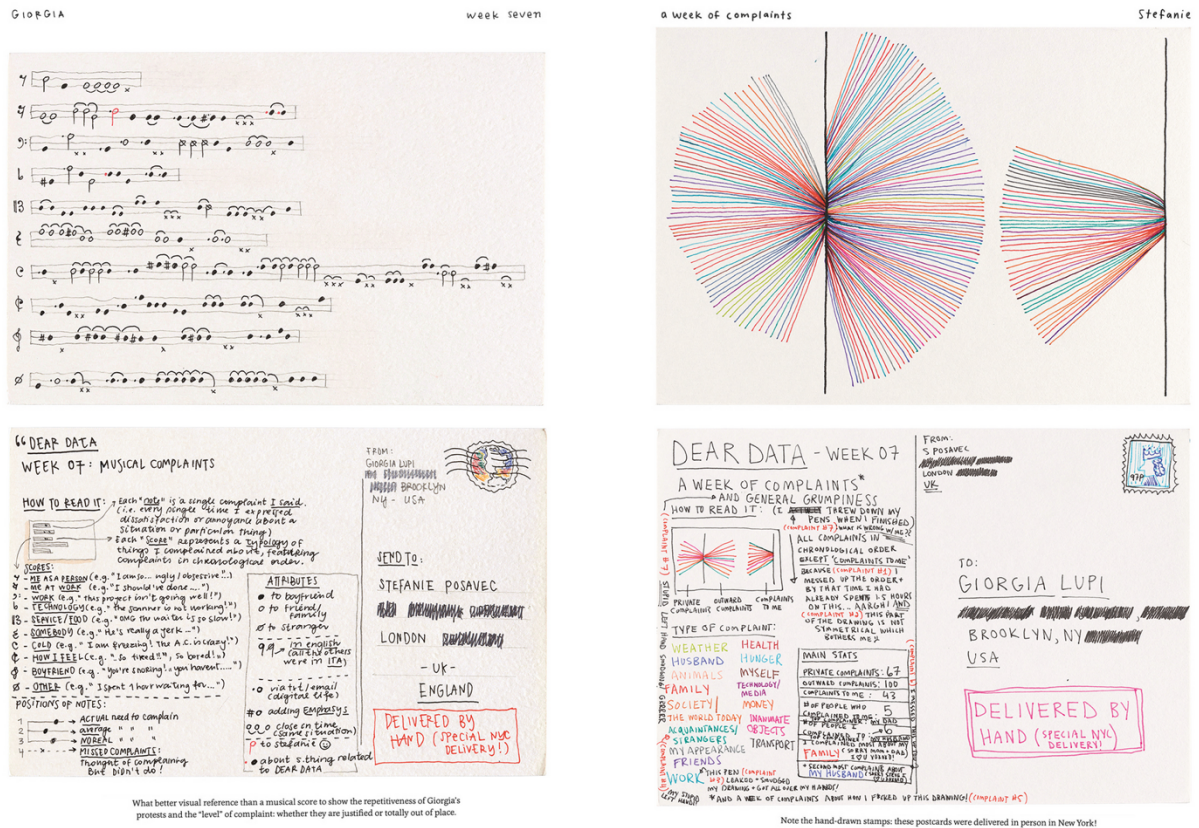 GIORGIA
week seven
a week of complaints
Stefanie
"DEAR DATA
WEEK 07: MUSICAL COMPLAINTS
HOW TO READ IT:
Each "note" is a single complaint I said
(i.e. every single time I expressed
dissatisfaction or annoyance about a
situation or particular thing)
Each "score" represents a typology of
things I complained about, featuring
complaints in chronological order.
SCORES:
ME AS A PERSON (e.g. "I am so... ugly/obsessive...)
ME AT WORK (e.g. "I should've done....")
WORK (e.g. "this project isn't going well!")
TECHNOLOGY (e.g. "the scanner is not working!")
SERVICE/FOOD (e.g. "OMG the waiter is so slow!")
SOMEBODY (e.g. "He's really a jerk...")
COLD (e.g. "I am freezing! The A.C. is crazy!")
HOW I FEEL (e.g. "... so tired!", so bored!")
BOYFRIEND (e.g. "you're snoring!" "you havent....")
OTHER (e.g. "I spent 1 hour waiting for...")
POSITIONS OF NOTES:
1
2
3
4
ACTUAL need to complain
average " "
NO REAL " "
MISSED COMPLAINTS:
Thought of complaining
But didn't do!
ATTRIBUTES
to boyfriend
to friend/
family
to stranger
in english
(all the others
were in ITA)
via txt/email
(digital life)
adding emphasys
close on time
(same situation)
to stefanie
about s.thing related
to DEAR DATA
FROM:
GIORGIA LUPI
BROOKLYN
NY - USA
SEND TO:
STEFANIE POSAVEC
LONDON
- UK -
ENGLAND
DELIVERED BY
HAND (SPECIAL NYC
DELIVERY!)
What better visual reference than a musical score to show the repetitiveness of Giorgia's
protests and the "level" of complaint: whether they are justified or totally out of place.
DEAR DATA - WEEK 07
A WEEK OF COMPLAINTS*
AND GENERAL GRUMPINESS
HOW TO READ IT:
(I THREW DOWN MY
PENS WHEN I FINISHED)
(COMPLAINT #7) WHAT IS WRONG W/ME?!
PRIVATE COMPLAINTS
OUTWARD COMPLAINTS
COMPLAINTS TO ME
ALL COMPLAINTS IN
CHRONOLOGICAL ORDER
EXCEPT 'COMPLAINTS TO ME'
BECAUSE (COMPLAINT #1) I
MESSED UP THE ORDER +
BY THAT TIME I HAD
ALREADY SPENT 1.5 HOURS
ON THIS... AARGH! AND
(COMPLAINT #2) THIS PART
OF THE DRAWING IS NOT
SYMETRICAL WHICH
BOTHERS ME
TYPE OF COMPLAINT:
WEATHER
HUSBAND
ANIMALS
FAMILY
SOCIETY/
THE WORLD TODAY
ACQUAINTANCES/
STRANGERS
MY APPEARANCE
FRIENDS
WORK
HEALTH
HUNGER
MYSELF
TECHNOLOGY/
MEDIA
MONEY
INANIMATE
OBJECTS
TRANSPORT
MAIN STATS
PRIVATE COMPLAINTS: 67
OUTWARD COMPLAINTS: 100
COMPLAINTS TO ME: 43
# OF PEOPLE WHO
COMPLAINED TO ME: 5
# OF PEOPLE I
COMPLAINED TO: 6
I COMPLAINED MOST ABOUT MY
FAMILY (SORRY MAM + DAD)
SECOND MOST COMPLAINED ABOUT
MY HUSBAND
*THIS PEN (COMPLAINT
LEAKED + SMUDGED
MY DRAWING + GOT ALL OVER MY HANDS!
*AND A WEEK OF COMPLAINTS ABOUT HOW I F*CKED UP THIS DRAWING! (COMPLAINT #5)
FROM:
S POSAVEC
LONDON
UK
97P
TO:
GIORGIA LUPI
BROOKLYN, NY
USA
DELIVERED BY
HAND (SPECIAL NYC
DELIVERY!)
Note the hand-drawn stamps: these postcards were delivered in person in New York!